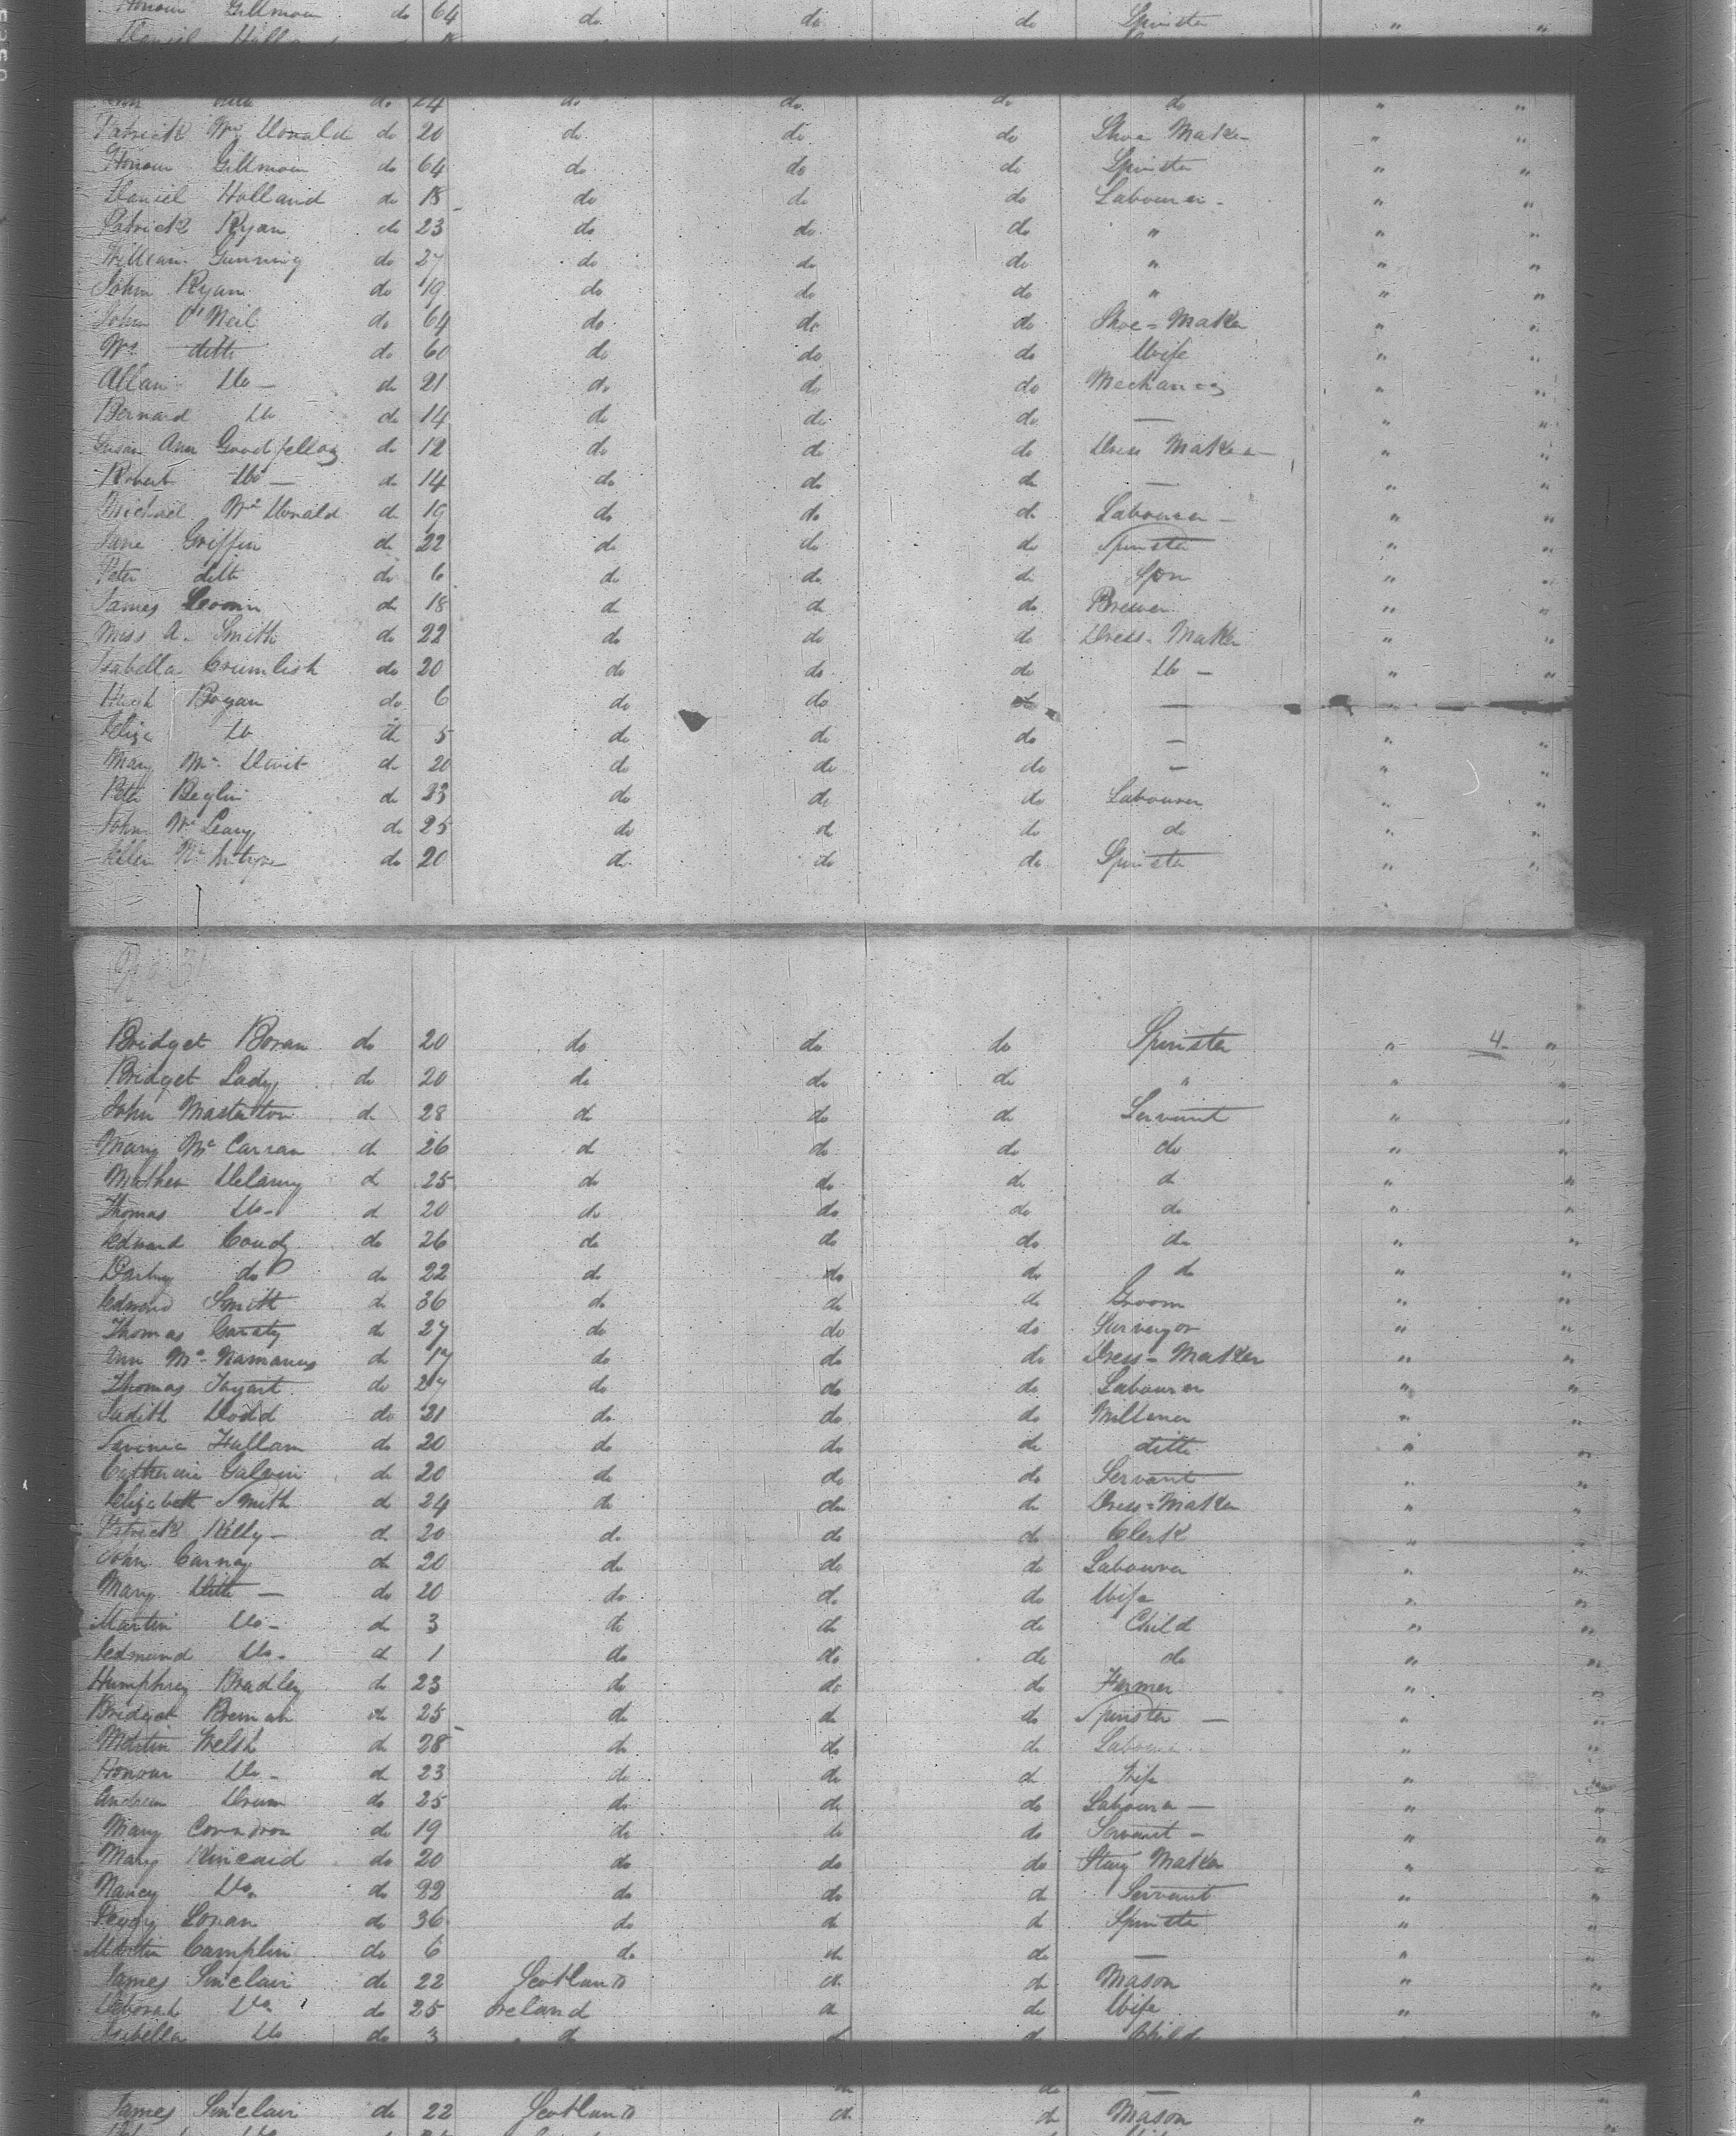 Honour Gillmour do 64 do do do Spinster " "
Daniel Holland
Ann ditto do 24 do do do do " "
Patrick Mc Donald do 20 do do do Shoe Maker " "
Honour Gillmour do 64 do do do Spinster " "
Daniel Holland do 18 do do do Labourer - " "
Patrick Ryan do 23 do do do " " "
William Gunning do 27 do do do " " "
John Ryan do 19 do do do " " "
John O'Neil do 64 do do do Shoe = Maker " "
Mrs ditto do 60 do do do Wife " "
Allan Do - do 21 do do do Mechanic " "
Bernard Do do 14 do do do — " "
Susan Ann Goodfellow do 12 do do do Dress Maker " "
Robert Do - do 14 do do do — " "
Michael Mc Donald do 19 do do do Labourer - " "
Jane Griffin do 22 do do do Spinster " "
Peter ditto do 6 do do do Son " "
James do 18 do do do Brewer " "
Miss A. Smith do 22 do do do Dress - Maker " "
Isabella Crumlish do 20 do do do Do - " "
Hugh Bogan do 6 do do do — "
Eliza Do do 5 do do do — " "
Mary Mc Devit do 20 do do do — " "
Peter Beglin do 23 do do do Labourer " "
John Mc Leary do 25 do do do do " "
Ellen Mc Intyre do 20 do do do Spinster " "
Bridget Boran do 20 do do do Spinster " 4 "
Bridget Lady do 20 do do do " " "
John Masterton do 28 do do do Servant " "
Mary Mc Carran do 26 do do do do " "
Mathew Delany do 25 do do do do " "
Thomas Do - do 20 do do do do " "
Edward Coudy do 26 do do do do " "
Darby do do 22 do do do do " "
Edward Smith do 36 do do do Groom " "
Thomas Garaty do 27 do do do Surveyor " "
Ann Mc Namanus do 17 do do do Dress - Maker " "
Thomas Tagart do 27 do do do Labourer " "
Judith Dodd do 21 do do do Millener " "
Lavinia Hallam do 20 do do do ditto " "
Catherine Galvin do 20 do do do Servant " "
Elizabeth Smith do 24 do do do Dress = Maker " "
Patrick Kelly - do 20 do do do Clerk " "
John Carney do 20 do do do Labourer " "
Mary Ditto — do 20 do do do Wife " "
Martin Do - do 3 do do do Child " "
Edmund Do - do 1 do do do do " "
Humphrey Bradley do 23 do do do Farmer " "
Bridget Brennan do 25 do do do Spinster — " "
Martin Welsh do 28 do do do Labourer " "
Honour Do - do 23 do do do Wife " "
Andrew Drum do 25 do do do Labourer — " "
Mary do 19 do do do Servant - " "
Mary Kincaid do 20 do do do Stay Maker " "
Nancy Do. do 22 do do do Servant " "
Peggy Lonan do 36 do do do Spinster " "
Martin Camplin do 6 do do do — " "
James Sinclair do 22 Scotland do do Mason " "
Deborah Do do 25 Ireland do do Wife " "
Isabella Do do 3 do do do Child
do do — "
James Sinclair do 22 Scotland do do Mason " "